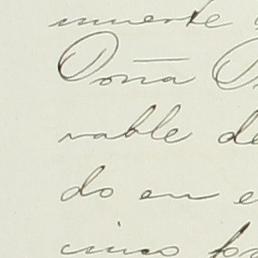 muerte
Doña
rable de
do en e
cinco